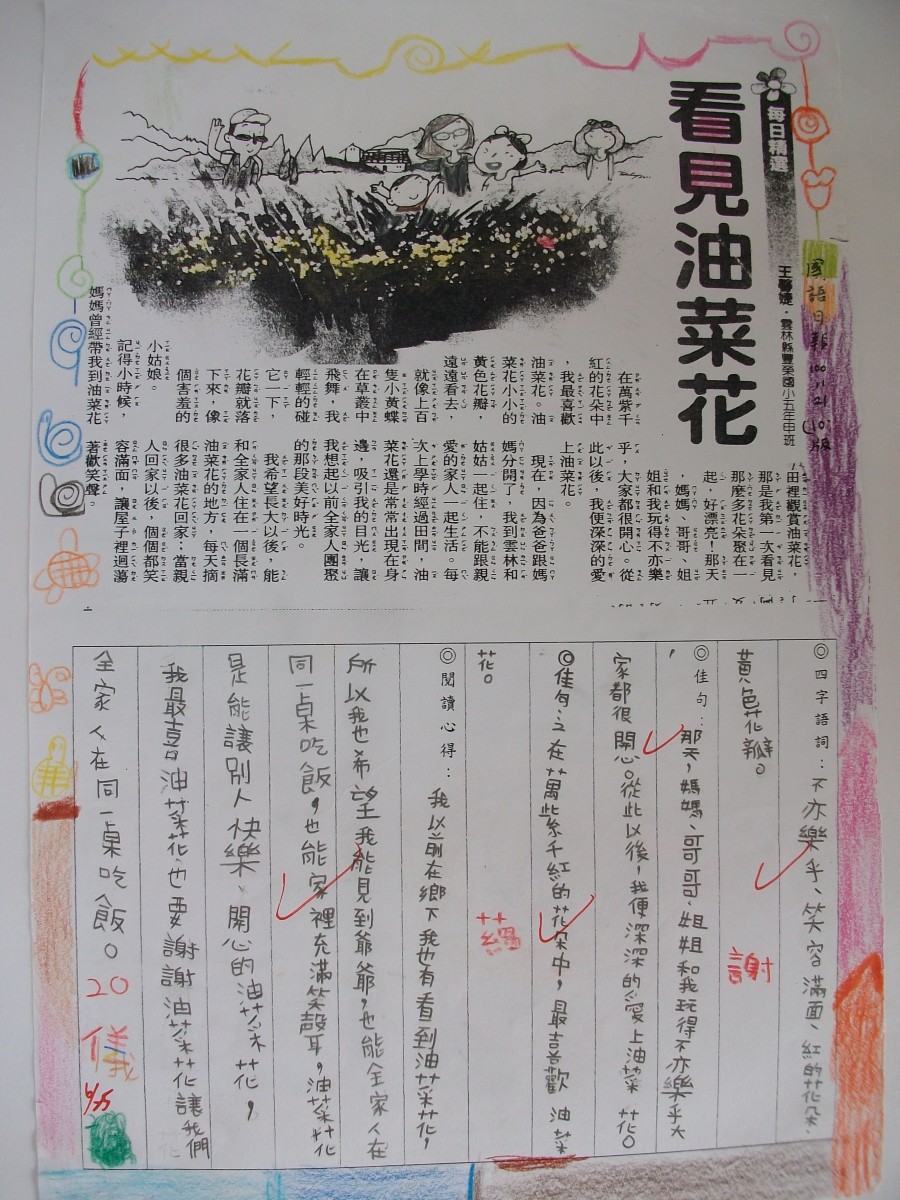 每日精選
看見油菜花
王馨婕．雲林縣豐榮國小五年中班
國語日報 100.11.21 10版
在萬紫千
紅的花朵中
，我最喜歡
油菜花。油
菜花小小的
黃色花瓣，
遠遠看去，
就像上百
隻小黃蝶
在草叢中
飛舞，我
輕輕的碰
它一下，
花瓣就落
下來，像
個害羞的
小姑娘。
記得小時候，
媽媽曾經帶我到油菜花
田裡觀賞油菜花，
那是我第一次看見
那麼多花朵聚在一
起，好漂亮！那天
，媽媽、哥哥、姐
姐和我玩得不亦樂
乎，大家都很開心。從
此以後，我便深深的愛
上油菜花。
現在，因為爸爸跟媽
媽分開了，我到雲林和
姑姑一起住，不能跟親
愛的家人一起生活。每
次上學時經過田間，油
菜花還是常常出現在身
邊，吸引我的目光，讓
我想起以前全家人團聚
的那段美好時光。
我希望長大以後，能
和全家人住在一個長滿
油菜花的地方，每天摘
很多油菜花回家；當親
人回家以後，個個都笑
容滿面，讓屋子裡迴蕩
著歡笑聲。
◎四字語詞：不亦樂乎、笑容滿面、紅的花朵、
黃色花瓣。
謝
◎佳句：那天，媽媽、哥哥、姐姐和我玩得不亦樂乎大
家都很開心。從此以後，我便深深的愛上油菜花。
◎佳句：之在萬紫千紅的花朵中，最喜歡油菜
花。
◎閱讀心得：我以前在鄉下我也有看到油菜花，
所以我也希望我能見到爺爺，也能全家人在
同一桌吃飯，也能家裡充滿笑聲耳，油菜花
是能讓別人快樂、開心的油菜花，
我最喜油菜花、也要謝謝油菜花讓我們
全家人在同一桌吃飯。
20